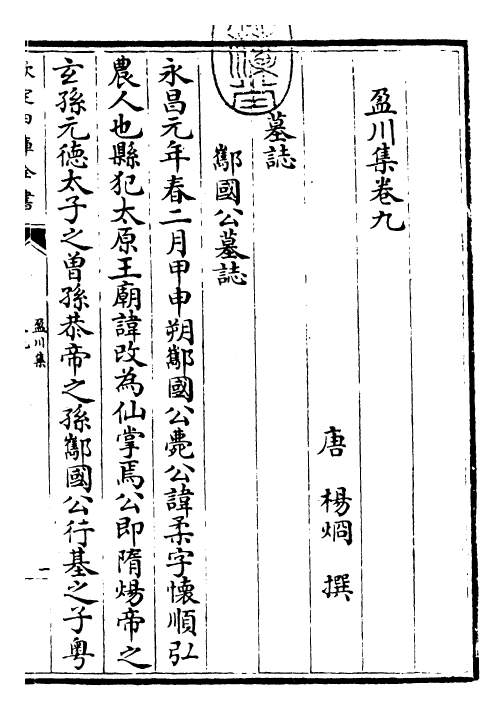 盈川集卷九
唐 楊烱 撰
墓誌
酅國公墓誌
永昌元年春二月甲申朔酅國公薨公諱柔字懐順弘
農人也縣犯太原王廟諱改為仙掌焉公即隋煬帝之
玄孫元徳太子之曾孫恭帝之孫酅國公行基之子粤
欽定四庫全書
盈川集
一